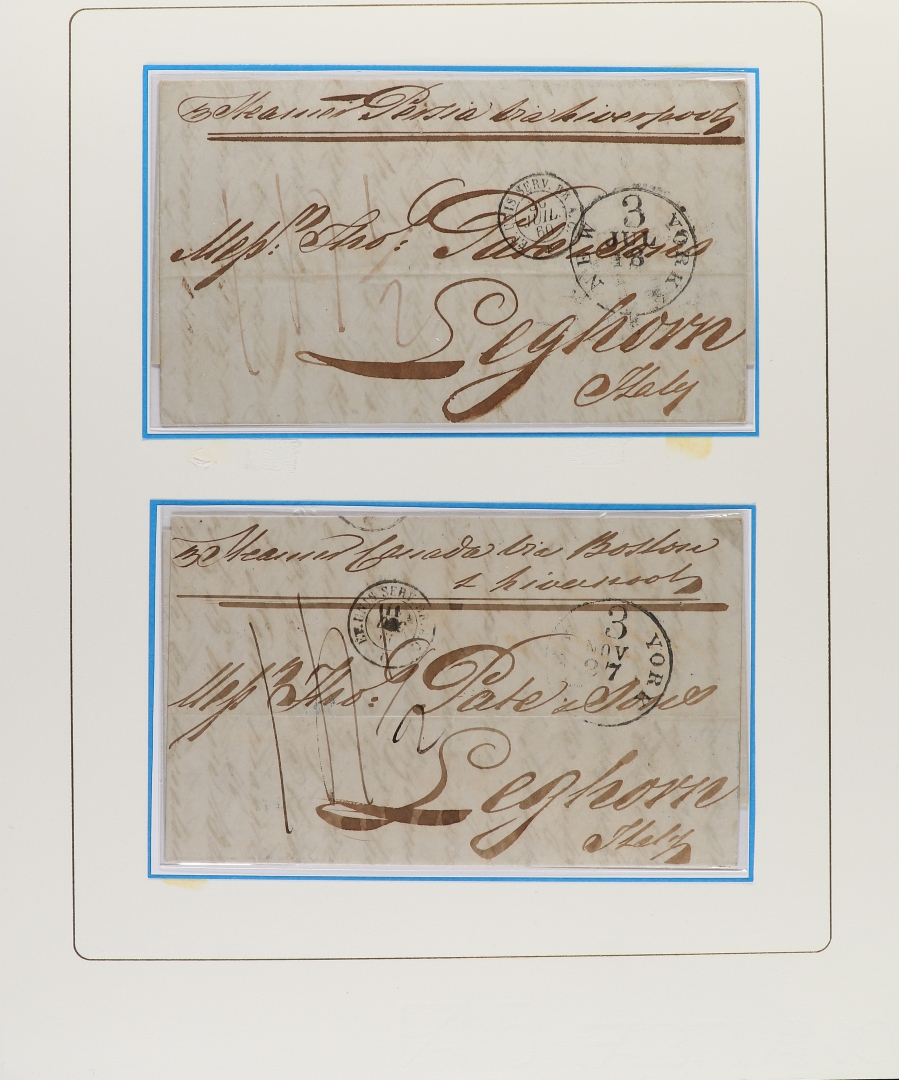 Steamer Persia via Liverpool
ET. UNIS SERV.
JUIL
60
NEW YORK
3
JUL
18
Mess.rs Tho.s Pate & Sons
Leghorn
Italy
Steamer Canada via Boston
& Liverpool
ET. UNIS SERV.
3
NOV
27
YORK
Mess.rs Tho.s Pate & Sons
Leghorn
Italy